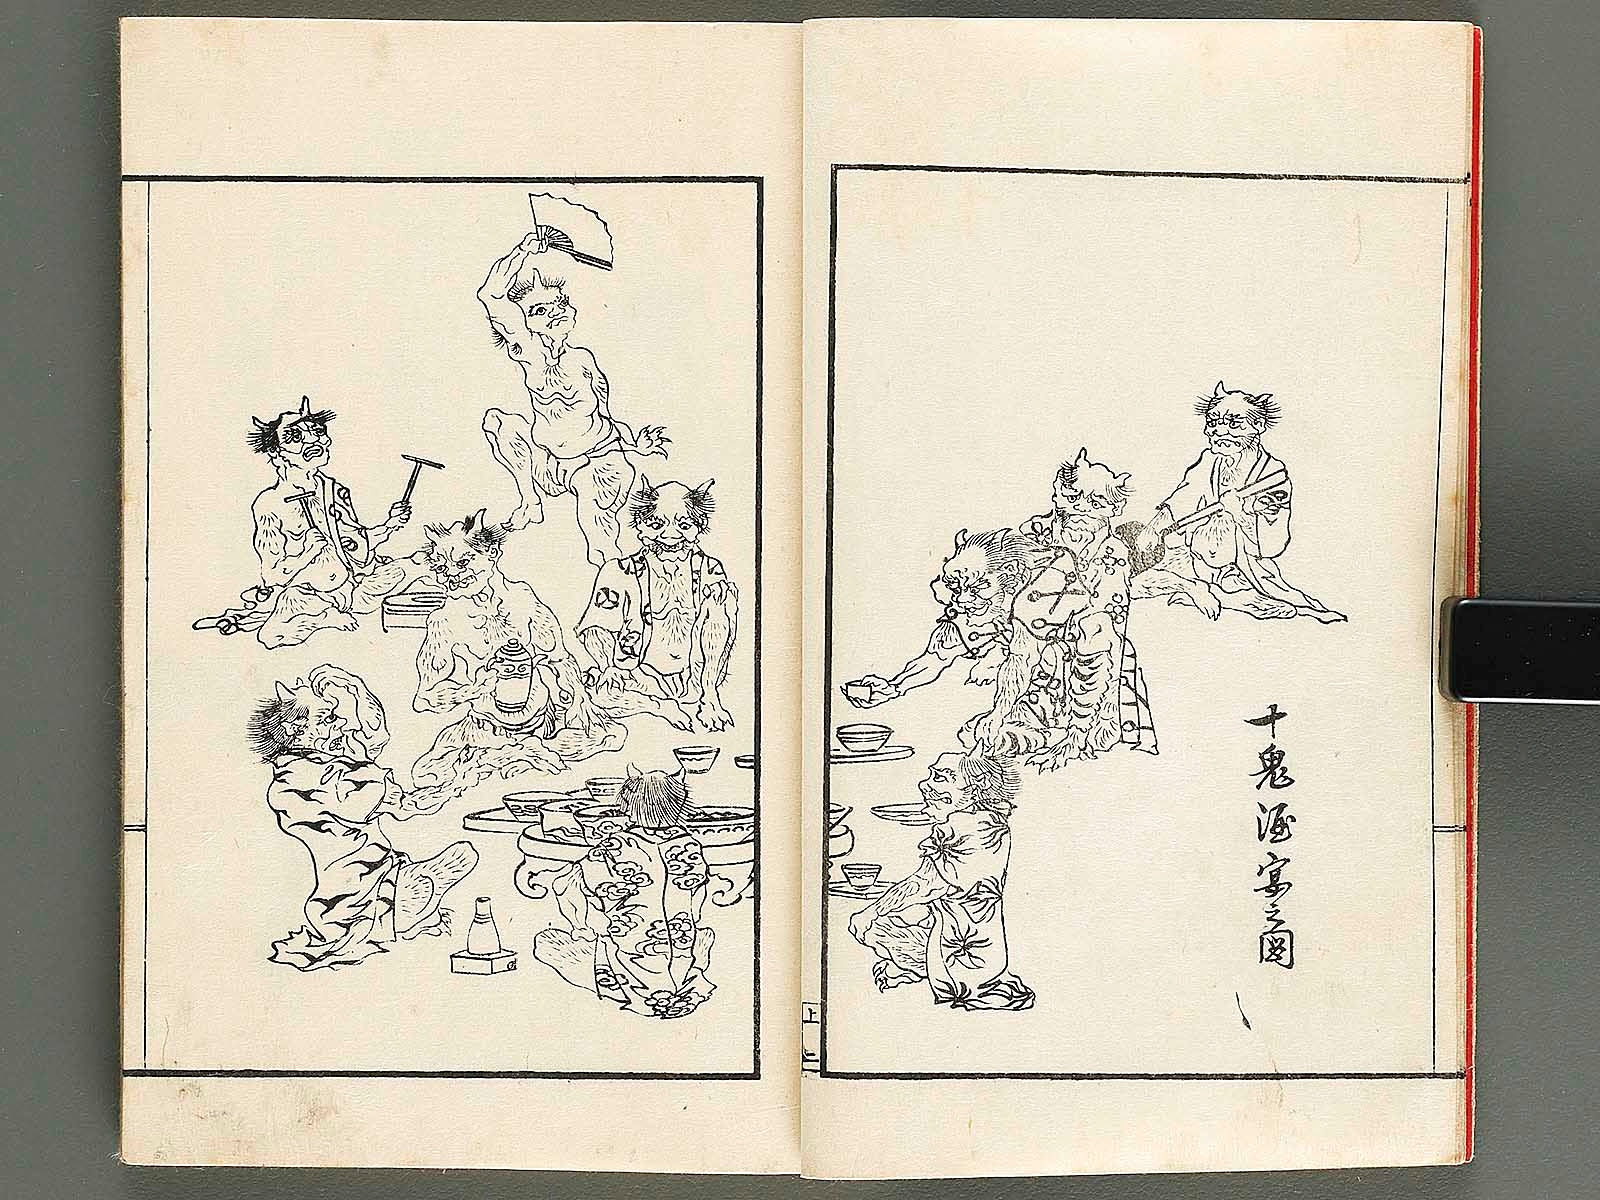 十鬼酒宴之図
上